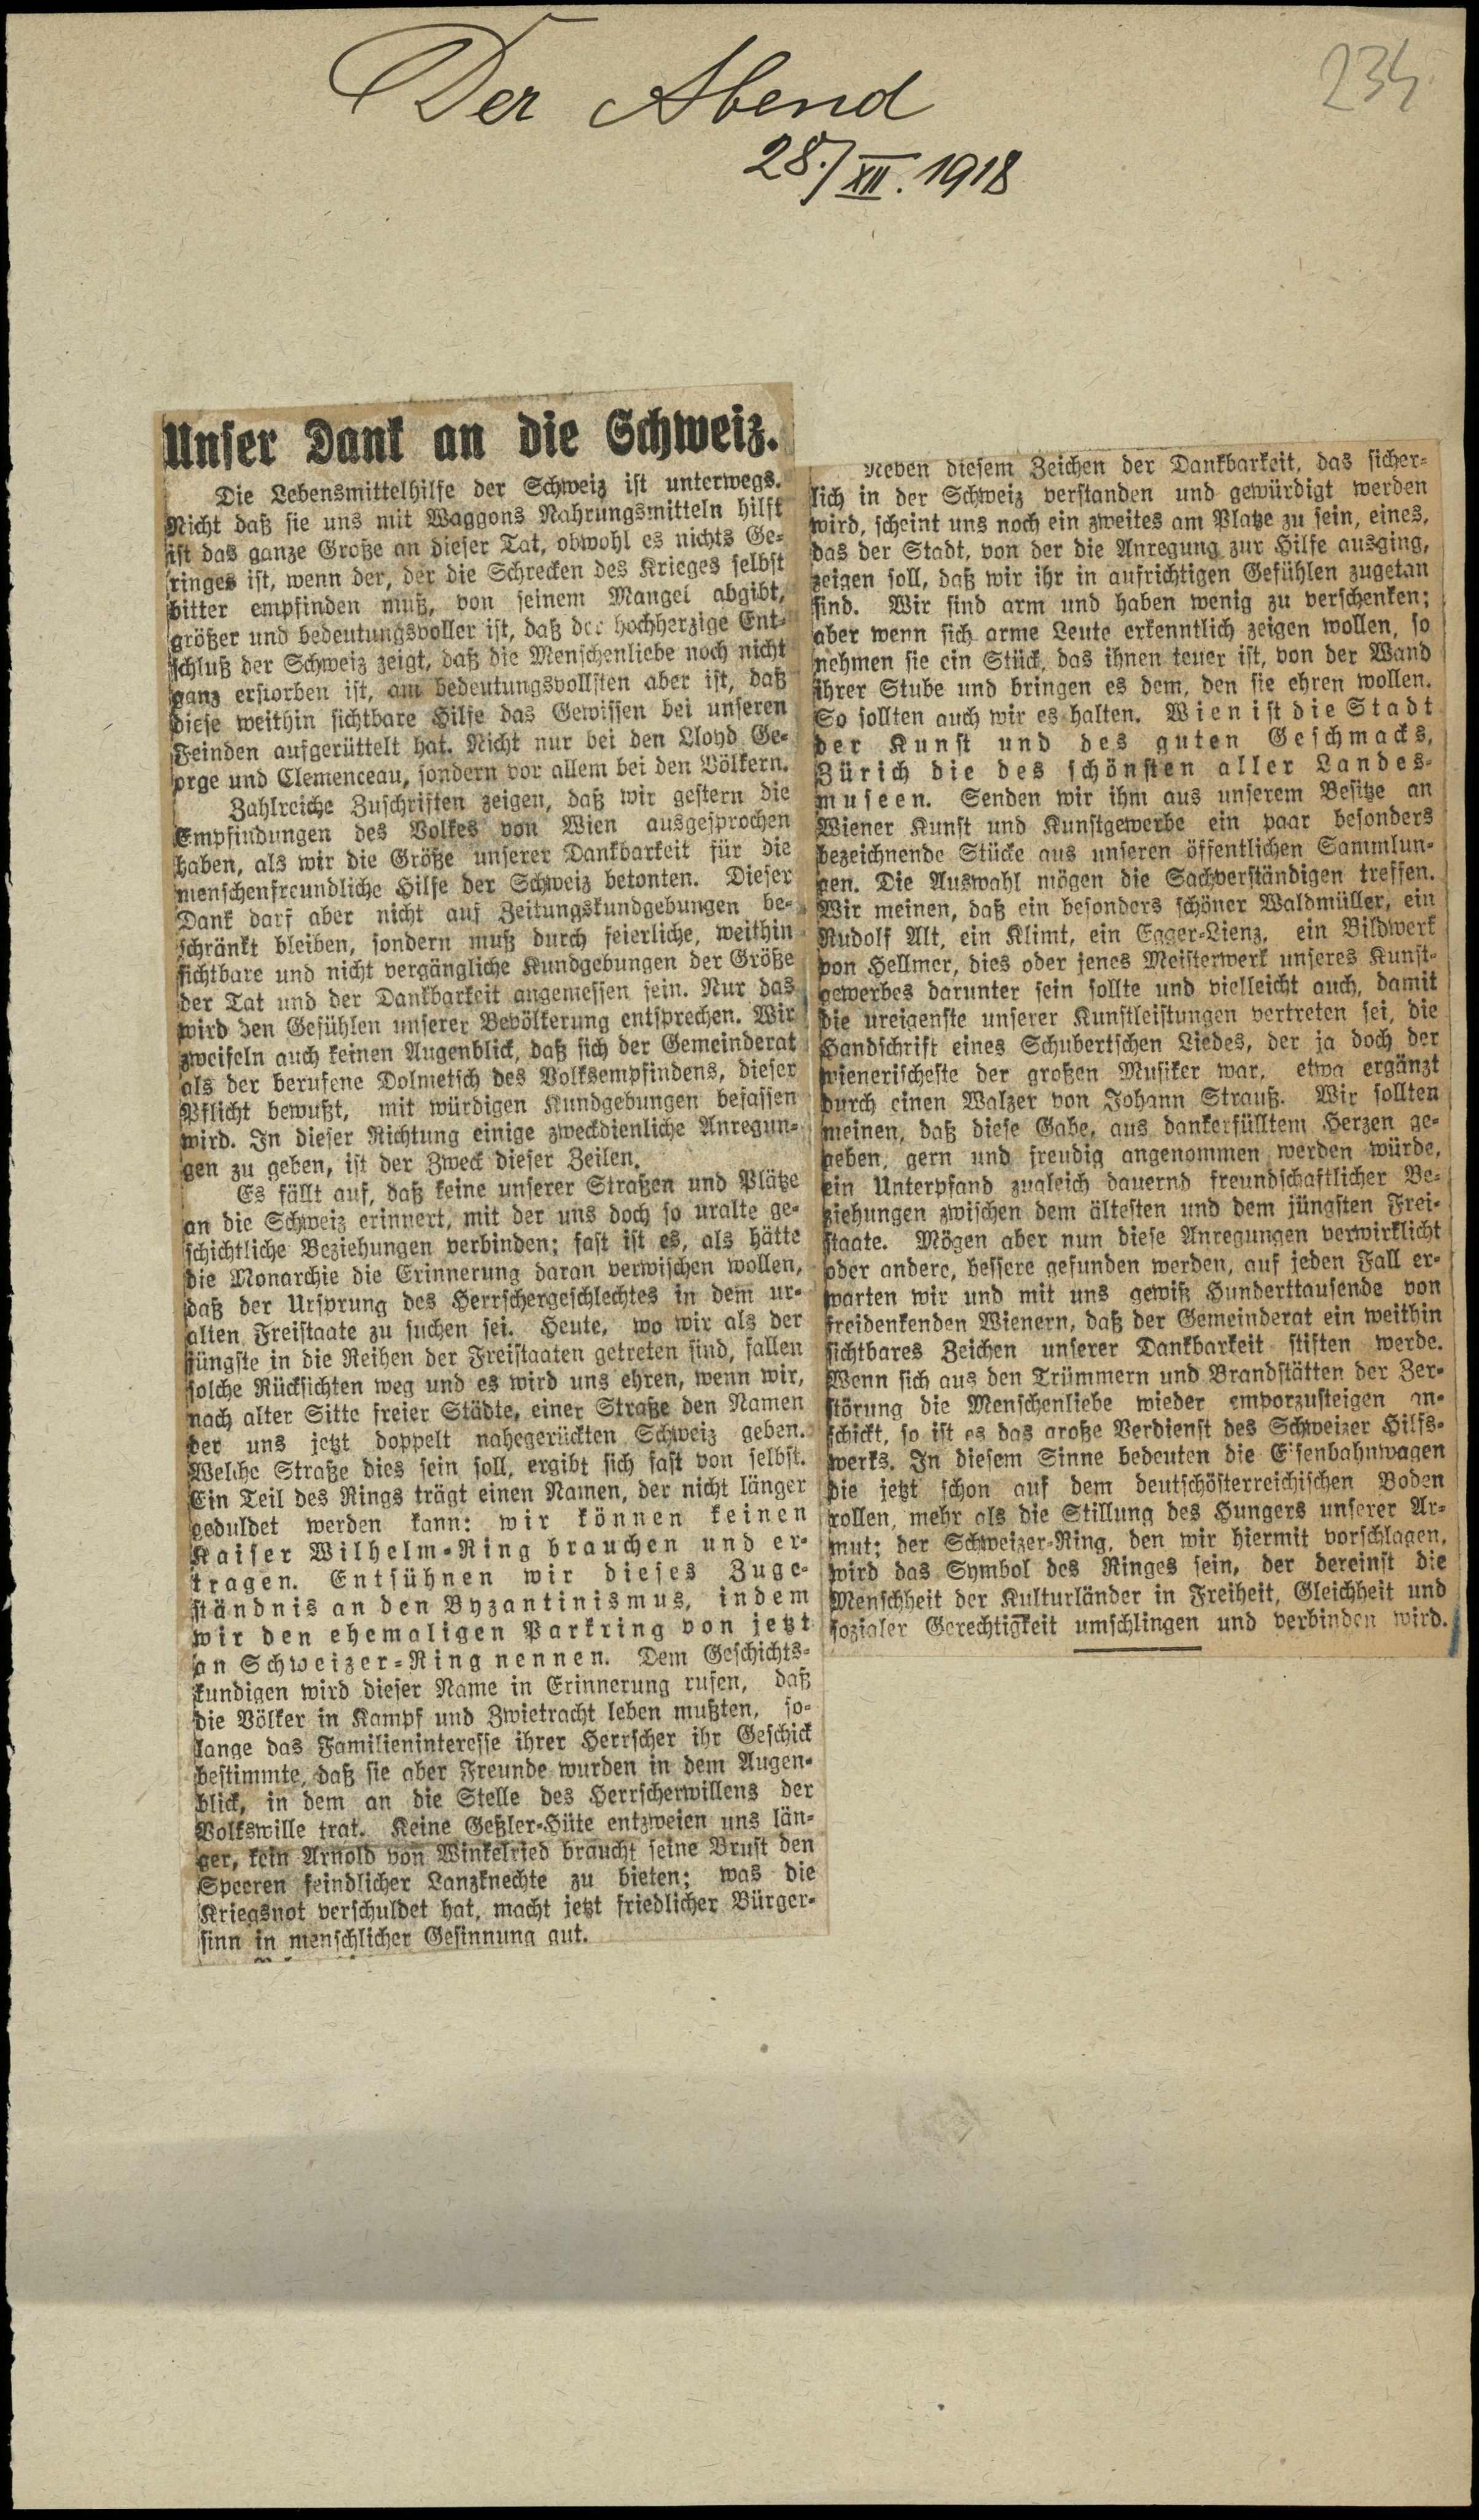 Der Abend
28./XII. 1918
234
Unser Dank an die Schweiz.
Die Lebensmittelhilfe der Schweiz ist unterwegs.
Nicht daß sie uns mit Waggons Nahrungsmitteln hilft
ist das ganze Große an dieser Tat, obwohl es nichts Ge-
ringes ist, wenn der, der die Schrecken des Krieges selbst
bitter empfinden muß, von seinem Mangel abgibt,
größer und bedeutungsvoller ist, daß der hochherzige Ent-
schluß der Schweiz zeigt, daß die Menschenliebe noch nicht
ganz erstorben ist, am bedeutungsvollsten aber ist, daß
diese weithin sichtbare Hilfe das Gewissen bei unseren
Feinden aufgerüttelt hat. Nicht nur bei den Lloyd Ge-
orge und Clemenceau, sondern vor allem bei den Völkern.
Zahlreiche Zuschriften zeigen, daß wir gestern die
Empfindungen des Volkes von Wien ausgesprochen
haben, als wir die Größe unserer Dankbarkeit für die
menschenfreundliche Hilfe der Schweiz betonten. Dieser
Dank darf aber nicht auf Zeitungskundgebungen be-
schränkt bleiben, sondern muß durch feierliche, weithin
sichtbare und nicht vergängliche Kundgebungen der Größe
der Tat und der Dankbarkeit angemessen sein. Nur das
wird den Gefühlen unserer Bevölkerung entsprechen. Wir
zweifeln auch keinen Augenblick, daß sich der Gemeinderat
als der berufene Dolmetsch des Volksempfindens, dieser
Pflicht bewußt, mit würdigen Kundgebungen befassen
wird. In dieser Richtung einige zweckdienliche Anregun-
gen zu geben, ist der Zweck dieser Zeilen.
Es fällt auf, daß keine unserer Straßen und Plätze
an die Schweiz erinnert, mit der uns doch so uralte ge-
schichtliche Beziehungen verbinden; fast ist es, als hätte
die Monarchie die Erinnerung daran verwischen wollen,
daß der Ursprung des Herrschergeschlechtes in dem ur-
alten Freistaate zu suchen sei. Heute, wo wir als der
jüngste in die Reihen der Freistaaten getreten sind, fallen
solche Rücksichten weg und es wird uns ehren, wenn wir,
nach alter Sitte freier Städte, einer Straße den Namen
der uns jetzt doppelt nahegerückten Schweiz geben.
Welche Straße dies sein soll, ergibt sich fast von selbst.
Ein Teil des Rings trägt einen Namen, der nicht länger
geduldet werden kann: wir können keinen
Kaiser Wilhelm-Ring brauchen und er-
tragen. Entsühnen wir dieses Zuge-
ständnis an den Byzantinismus, indem
wir den ehemaligen Parkring von jetzt
an Schweizer-Ring nennen. Dem Geschichts-
kundigen wird dieser Name in Erinnerung rufen, daß
die Völker in Kampf und Zwietracht leben mußten, so-
lange das Familieninteresse ihrer Herrscher ihr Geschick
bestimmte, daß sie aber Freunde wurden in dem Augen-
blick, in dem an die Stelle des Herrscherwillens der
Volkswille trat. Keine Geßler-Hüte entzweien uns län-
ger, kein Arnold von Winkelried braucht seine Brust den
Speeren feindlicher Lanzknechte zu bieten; was die
Kriegsnot verschuldet hat, macht jetzt friedlicher Bürger-
sinn in menschlicher Gesinnung gut.
Neben diesem Zeichen der Dankbarkeit, das sicher-
lich in der Schweiz verstanden und gewürdigt werden
wird, scheint uns noch ein zweites am Platze zu sein, eines,
das der Stadt, von der die Anregung zur Hilfe ausging,
zeigen soll, daß wir ihr in aufrichtigen Gefühlen zugetan
sind. Wir sind arm und haben wenig zu verschenken;
aber wenn sich arme Leute erkenntlich zeigen wollen, so
nehmen sie ein Stück, das ihnen teuer ist, von der Wand
ihrer Stube und bringen es dem, den sie ehren wollen.
So sollten auch wir es halten. Wien ist die Stadt
der Kunst und des guten Geschmacks,
Zürich die des schönsten aller Landes-
museen. Senden wir ihm aus unserem Besitze an
Wiener Kunst und Kunstgewerbe ein paar besonders
bezeichnende Stücke aus unseren öffentlichen Sammlun-
gen. Die Auswahl mögen die Sachverständigen treffen.
Wir meinen, daß ein besonders schöner Waldmüller, ein
Rudolf Alt, ein Klimt, ein Egger-Lienz, ein Bildwerk
von Hellmer, dies oder jenes Meisterwerk unseres Kunst-
gewerbes darunter sein sollte und vielleicht auch, damit
die ureigenste unserer Kunstleistungen vertreten sei, die
Handschrift eines Schubertschen Liedes, der ja doch der
wienerischeste der großen Musiker war, etwa ergänzt
durch einen Walzer von Johann Strauß. Wir sollten
meinen, daß diese Gabe, aus dankerfülltem Herzen ge-
geben, gern und freudig angenommen werden würde,
ein Unterpfand zugleich dauernd freundschaftlicher Be-
ziehungen zwischen dem ältesten und dem jüngsten Frei-
staate. Mögen aber nun diese Anregungen verwirklicht
oder andere, bessere gefunden werden, auf jeden Fall er-
warten wir und mit uns gewiß Hunderttausende von
freidenkenden Wienern, daß der Gemeinderat ein weithin
sichtbares Zeichen unserer Dankbarkeit stiften werde.
Wenn sich aus den Trümmern und Brandstätten der Zer-
störung die Menschenliebe wieder emporzusteigen an-
schickt, so ist es das große Verdienst des Schweizer Hilfs-
werks. In diesem Sinne bedeuten die Eisenbahnwagen
die jetzt schon auf dem deutschösterreichischen Boden
rollen, mehr als die Stillung des Hungers unserer Ar-
mut; der Schweizer-Ring, den wir hiermit vorschlagen,
wird das Symbol des Ringes sein, der dereinst die
Menschheit der Kulturländer in Freiheit, Gleichheit und
sozialer Gerechtigkeit umschlingen und verbinden wird.